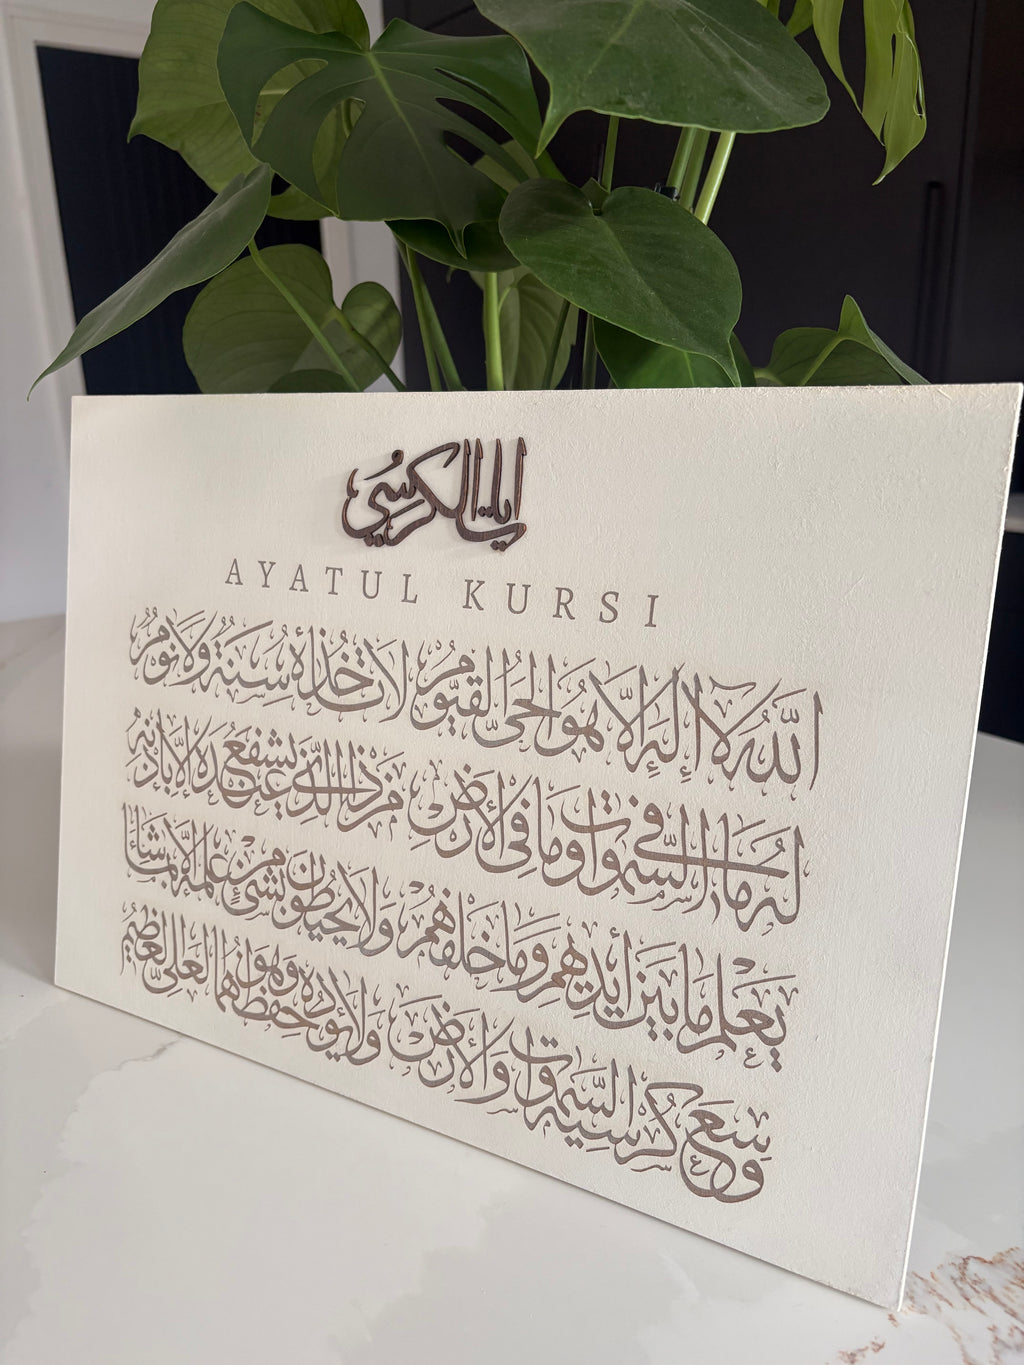 ايات الكرسي
AYATUL KURSI
اللَّهُ لَا إِلَهَ إِلَّا هُوَ الْحَيُّ الْقَيُّومُ لَا تَأْخُذُهُ سِنَةٌ وَلَا نَوْمٌ
لَهُ مَا فِي السَّمَوَاتِ وَمَا فِي الْأَرْضِ مَنْ ذَا الَّذِي يَشْفَعُ عِنْدَهُ إِلَّا بِإِذْنِهِ
يَعْلَمُ مَا بَيْنَ أَيْدِيهِمْ وَمَا خَلْفَهُمْ وَلَا يُحِيطُونَ بِشَيْءٍ مِنْ عِلْمِهِ إِلَّا بِمَا شَاءَ
وَسِعَ كُرْسِيُّهُ السَّمَوَاتِ وَالْأَرْضَ وَلَا يَئُودُهُ حِفْظُهُمَا وَهُوَ الْعَلِيُّ الْعَظِيمُ